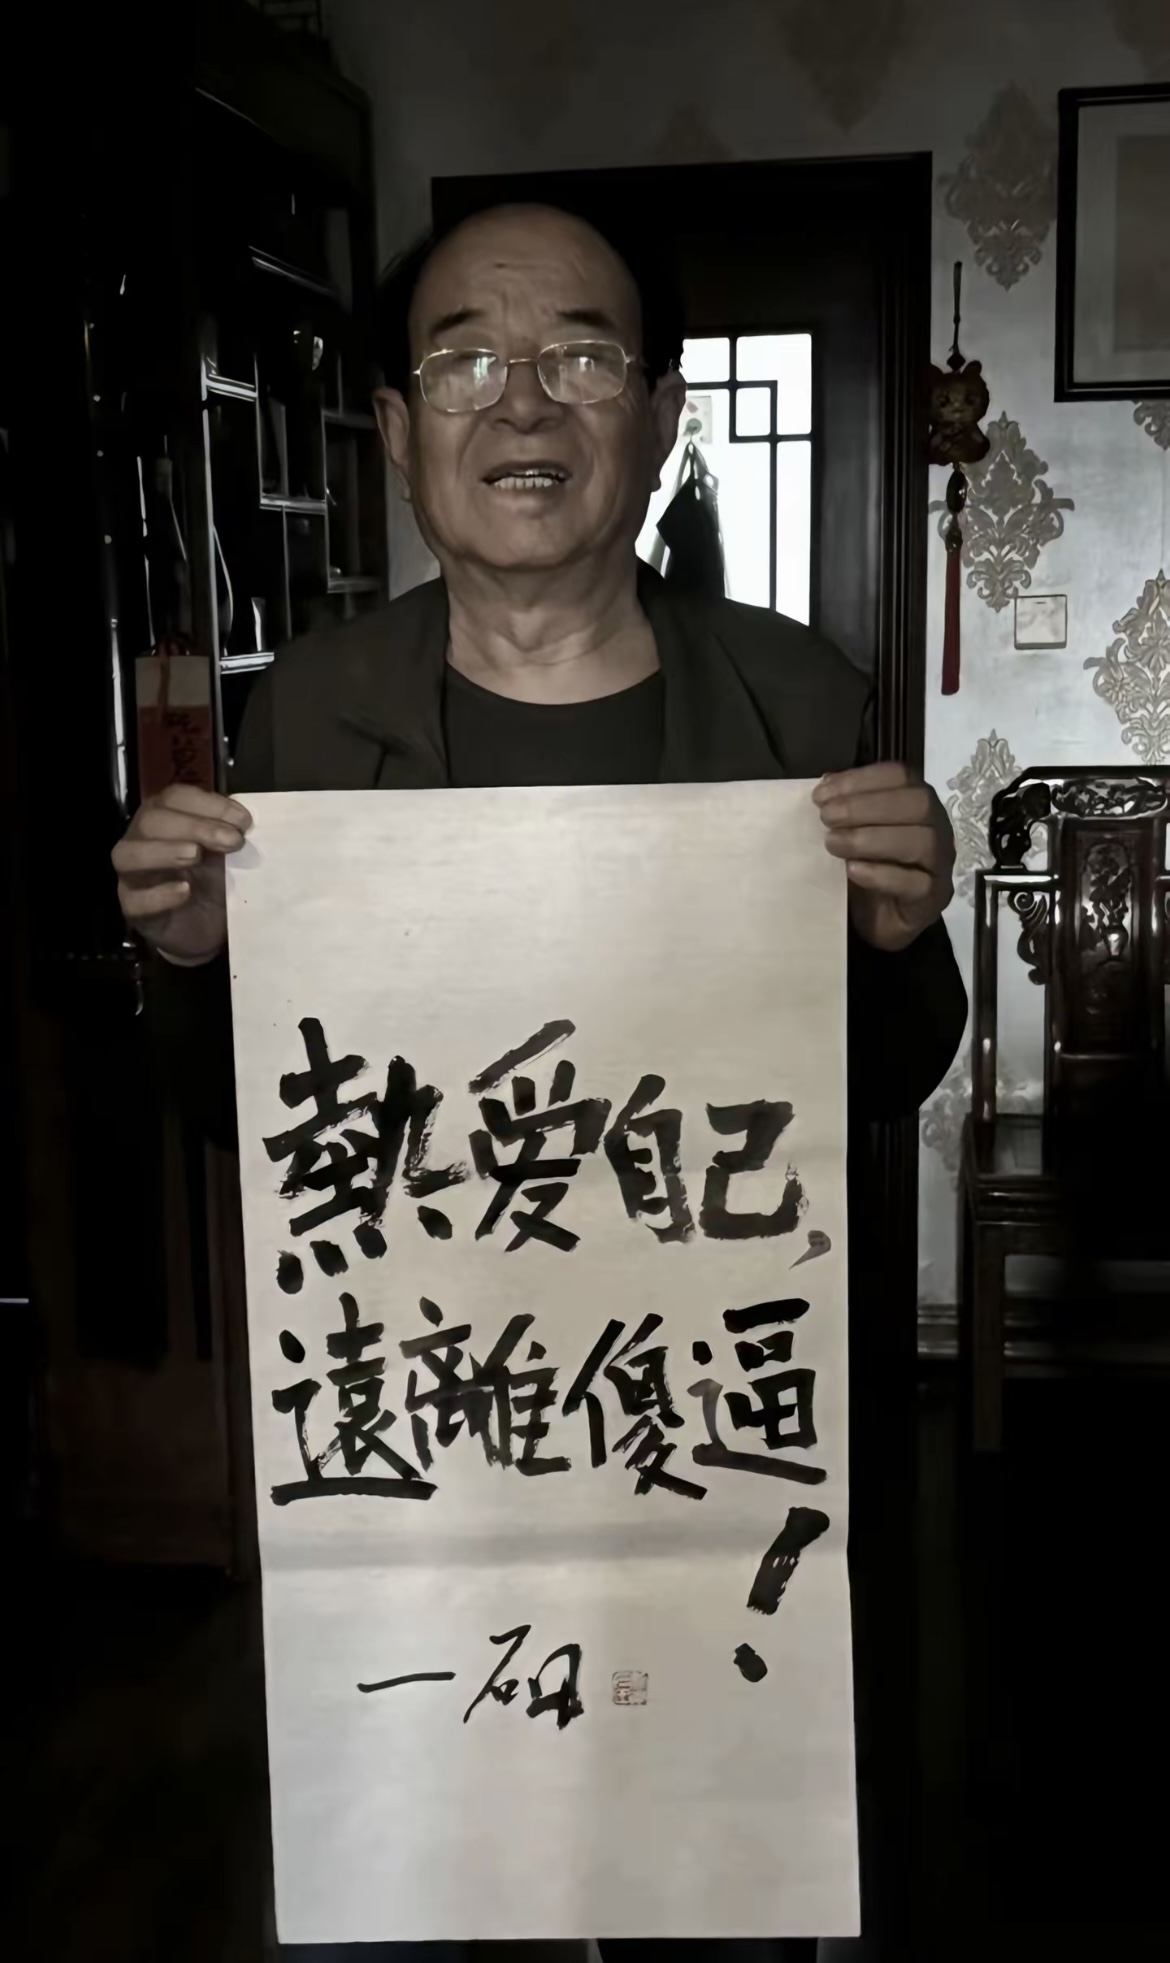 熱爱自己，
遠離傻逼！
一砚